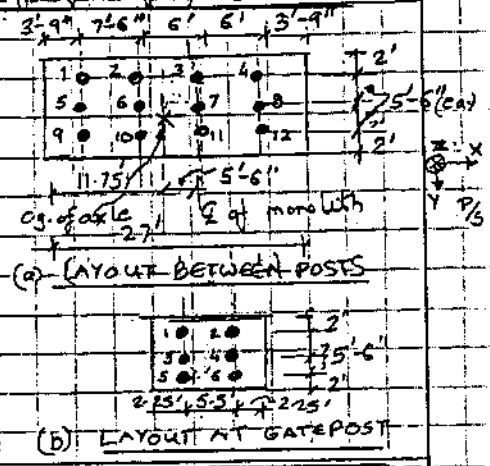 3'-9" 7'-6" 6' 6' 3'-9"
1 2 3 4
2'
5 6 7 8
5'-6" (EQ)
9 10 11 12
2'
11.75' 5'-6"
C.g. of axle ℄ of monolith
27'
Z X
Y P/S
(a) LAYOUT BETWEEN POSTS
1 2
2'
3 4
5'-6'
5 6
2'
2.25' 5.5' 2.25'
(b) LAYOUT AT GATEPOST